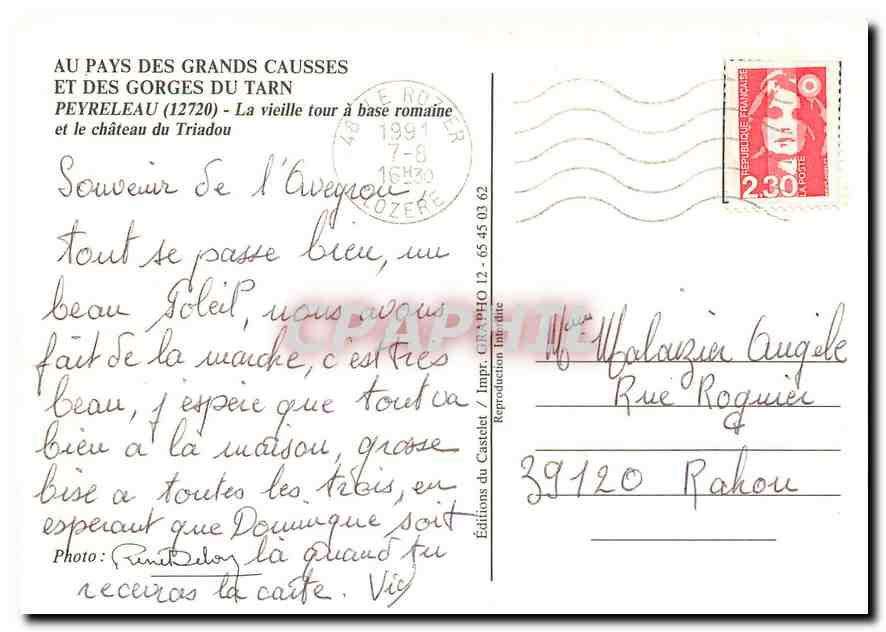 AU PAYS DES GRANDS CAUSSES
ET DES GORGES DU TARN
PEYRELEAU (12720) - La vieille tour à base romaine
et le château du Triadou
48 LE ROZIER
1991
7-8
16H30
LOZERE
REPUBLIQUE FRANÇAISE
2,30
LA POSTE
Souvenir de l'Aveyron
tout se passe bien, un
beau Soleil, nous avons
fait de la marche, c'est très
beau, j'espère que tout va
bien a la maison, grosse
bise a toutes les trois, en
esperant que Dominique soit
là quand tu
receviras la carte.
Photo :
Éditions du Castelet / Impr. GRAPHO 12 - 65 45 03 62
Reproduction Interdite
CPAPHIL
Angèle
Rue Roguier
39120 Rahon